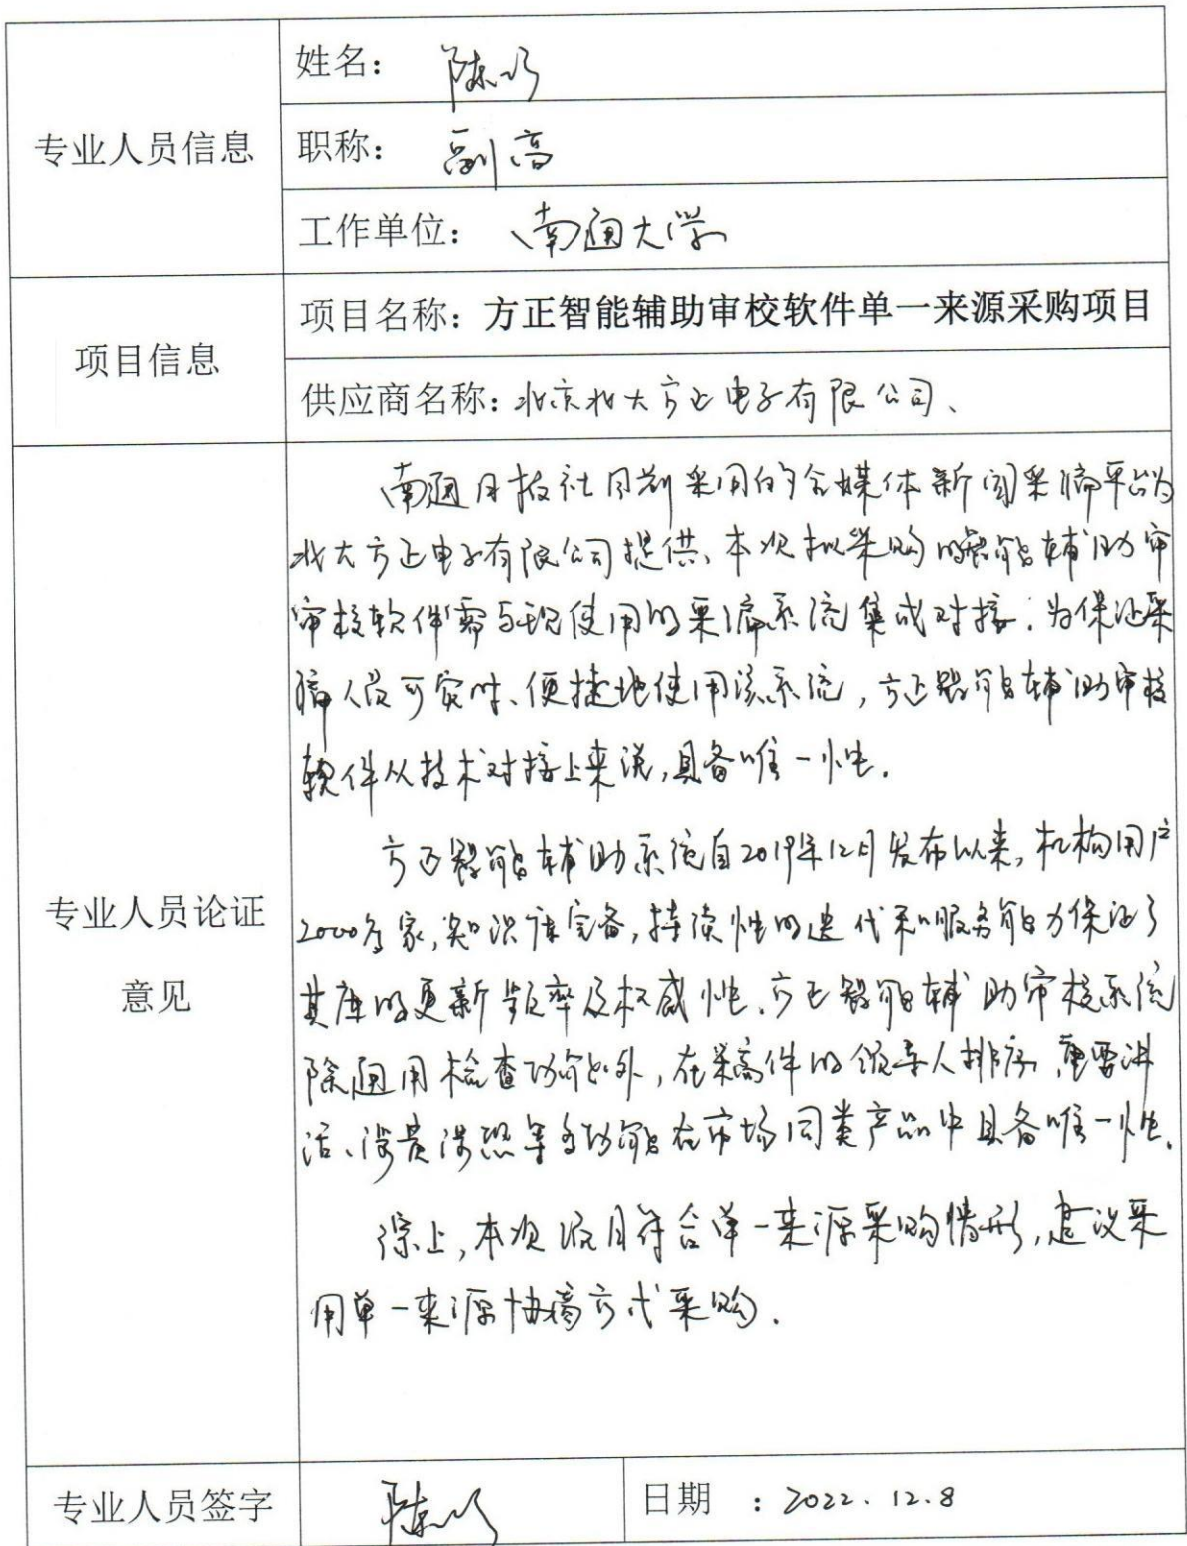 姓名：陈
职称：副高
专业人员信息
工作单位：南通大学
项目名称：方正智能辅助审校软件单一来源采购项目
项目信息
供应商名称：北京北大方正电子有限公司、
南通日报社目前采用的全媒体新闻采编平台为
北大方正电子有限公司提供、本次拟采购的智能辅助审
审核软件需与现使用的采编系统集成对接．为保证采
编人员可实时、便捷地使用该系统，方正智能辅助审核
软件从技术对接上来说，具备唯一性．
方正智能辅助系统自2019年12月发布以来，机构用户
专业人员论证
2000多家，知识库完备，持续性的迭代和服务能力保证了
意见
其库的更新频率及权威性．方正智能辅助审核系统
除通用检查功能外，在稿件的领导人排序、重要讲
话、涉黄涉恐等多功能在市场同类产品中具备唯一性．
综上，本次项目符合单一来源采购情形，建议采
用单一来源协商方式采购．
专业人员签字 陈 日期 ：2022.12.8